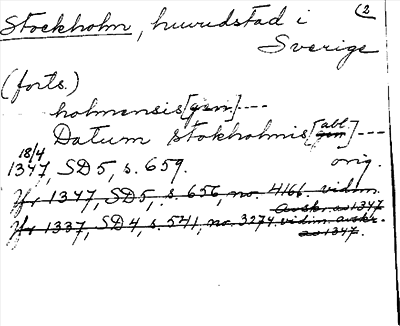 Stockholm, huvudstad i (2
Sverige
(forts.)
holmensis [gen] ---
Datum stokholmis [abl. gen] ---
18/4
1347, SD5, s. 659. orig.
Jfr 1347, SD5, s. 656, no. 4166. vidim.
Avskr. av 1347
Jfr 1337, SD4, s. 541, no. 3274. vidim. avskr.
av 1347.